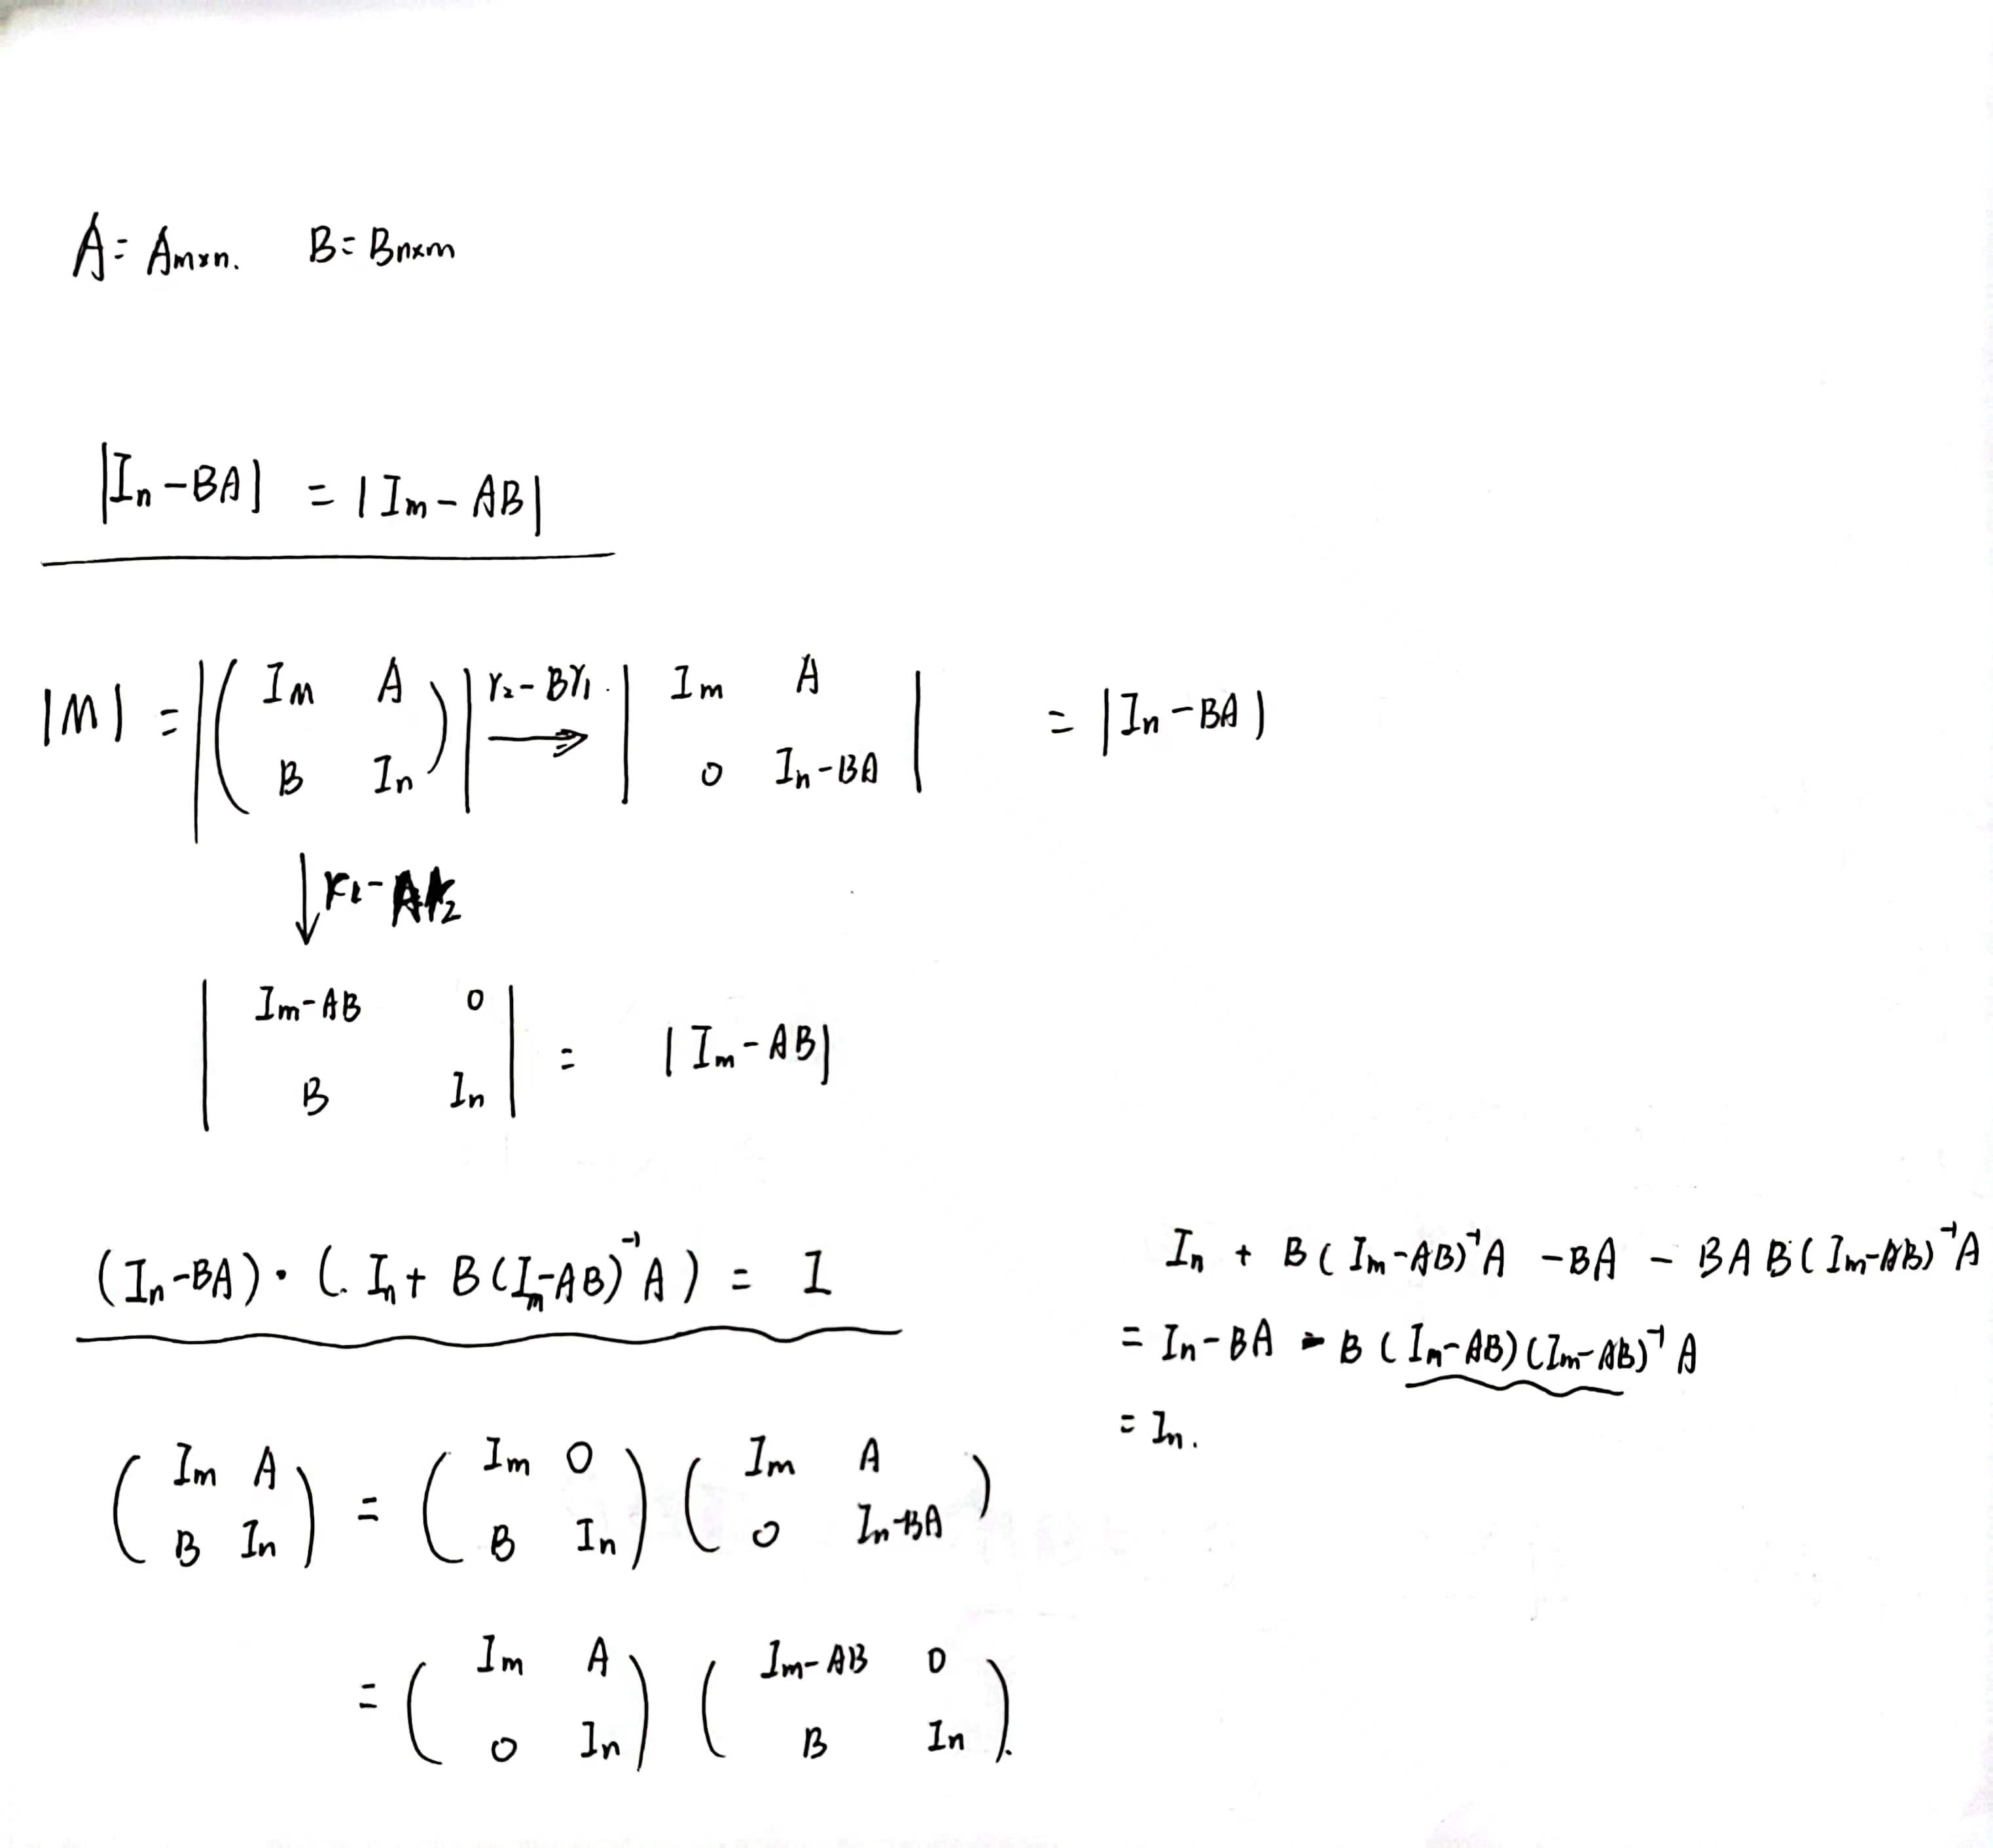 A = Am×n. B = Bn×m
|In - BA| = |Im - AB|
|M| = |( Im A ; B In )| r₂ - Br₁ → | Im A ; 0 In - BA | = |In - BA|
↓ r₁ - Ar₂
| Im - AB 0 ; B In | = |Im - AB|
(In - BA) · (. In + B(Im - AB)⁻¹A) = I
In + B(Im - AB)⁻¹A - BA - BAB(Im - AB)⁻¹A
= In - BA - B(Im - AB)(Im - AB)⁻¹A
= In.
( Im A ; B In ) = ( Im 0 ; B In ) ( Im A ; 0 In - BA )
= ( Im A ; 0 In ) ( Im - AB 0 ; B In ).